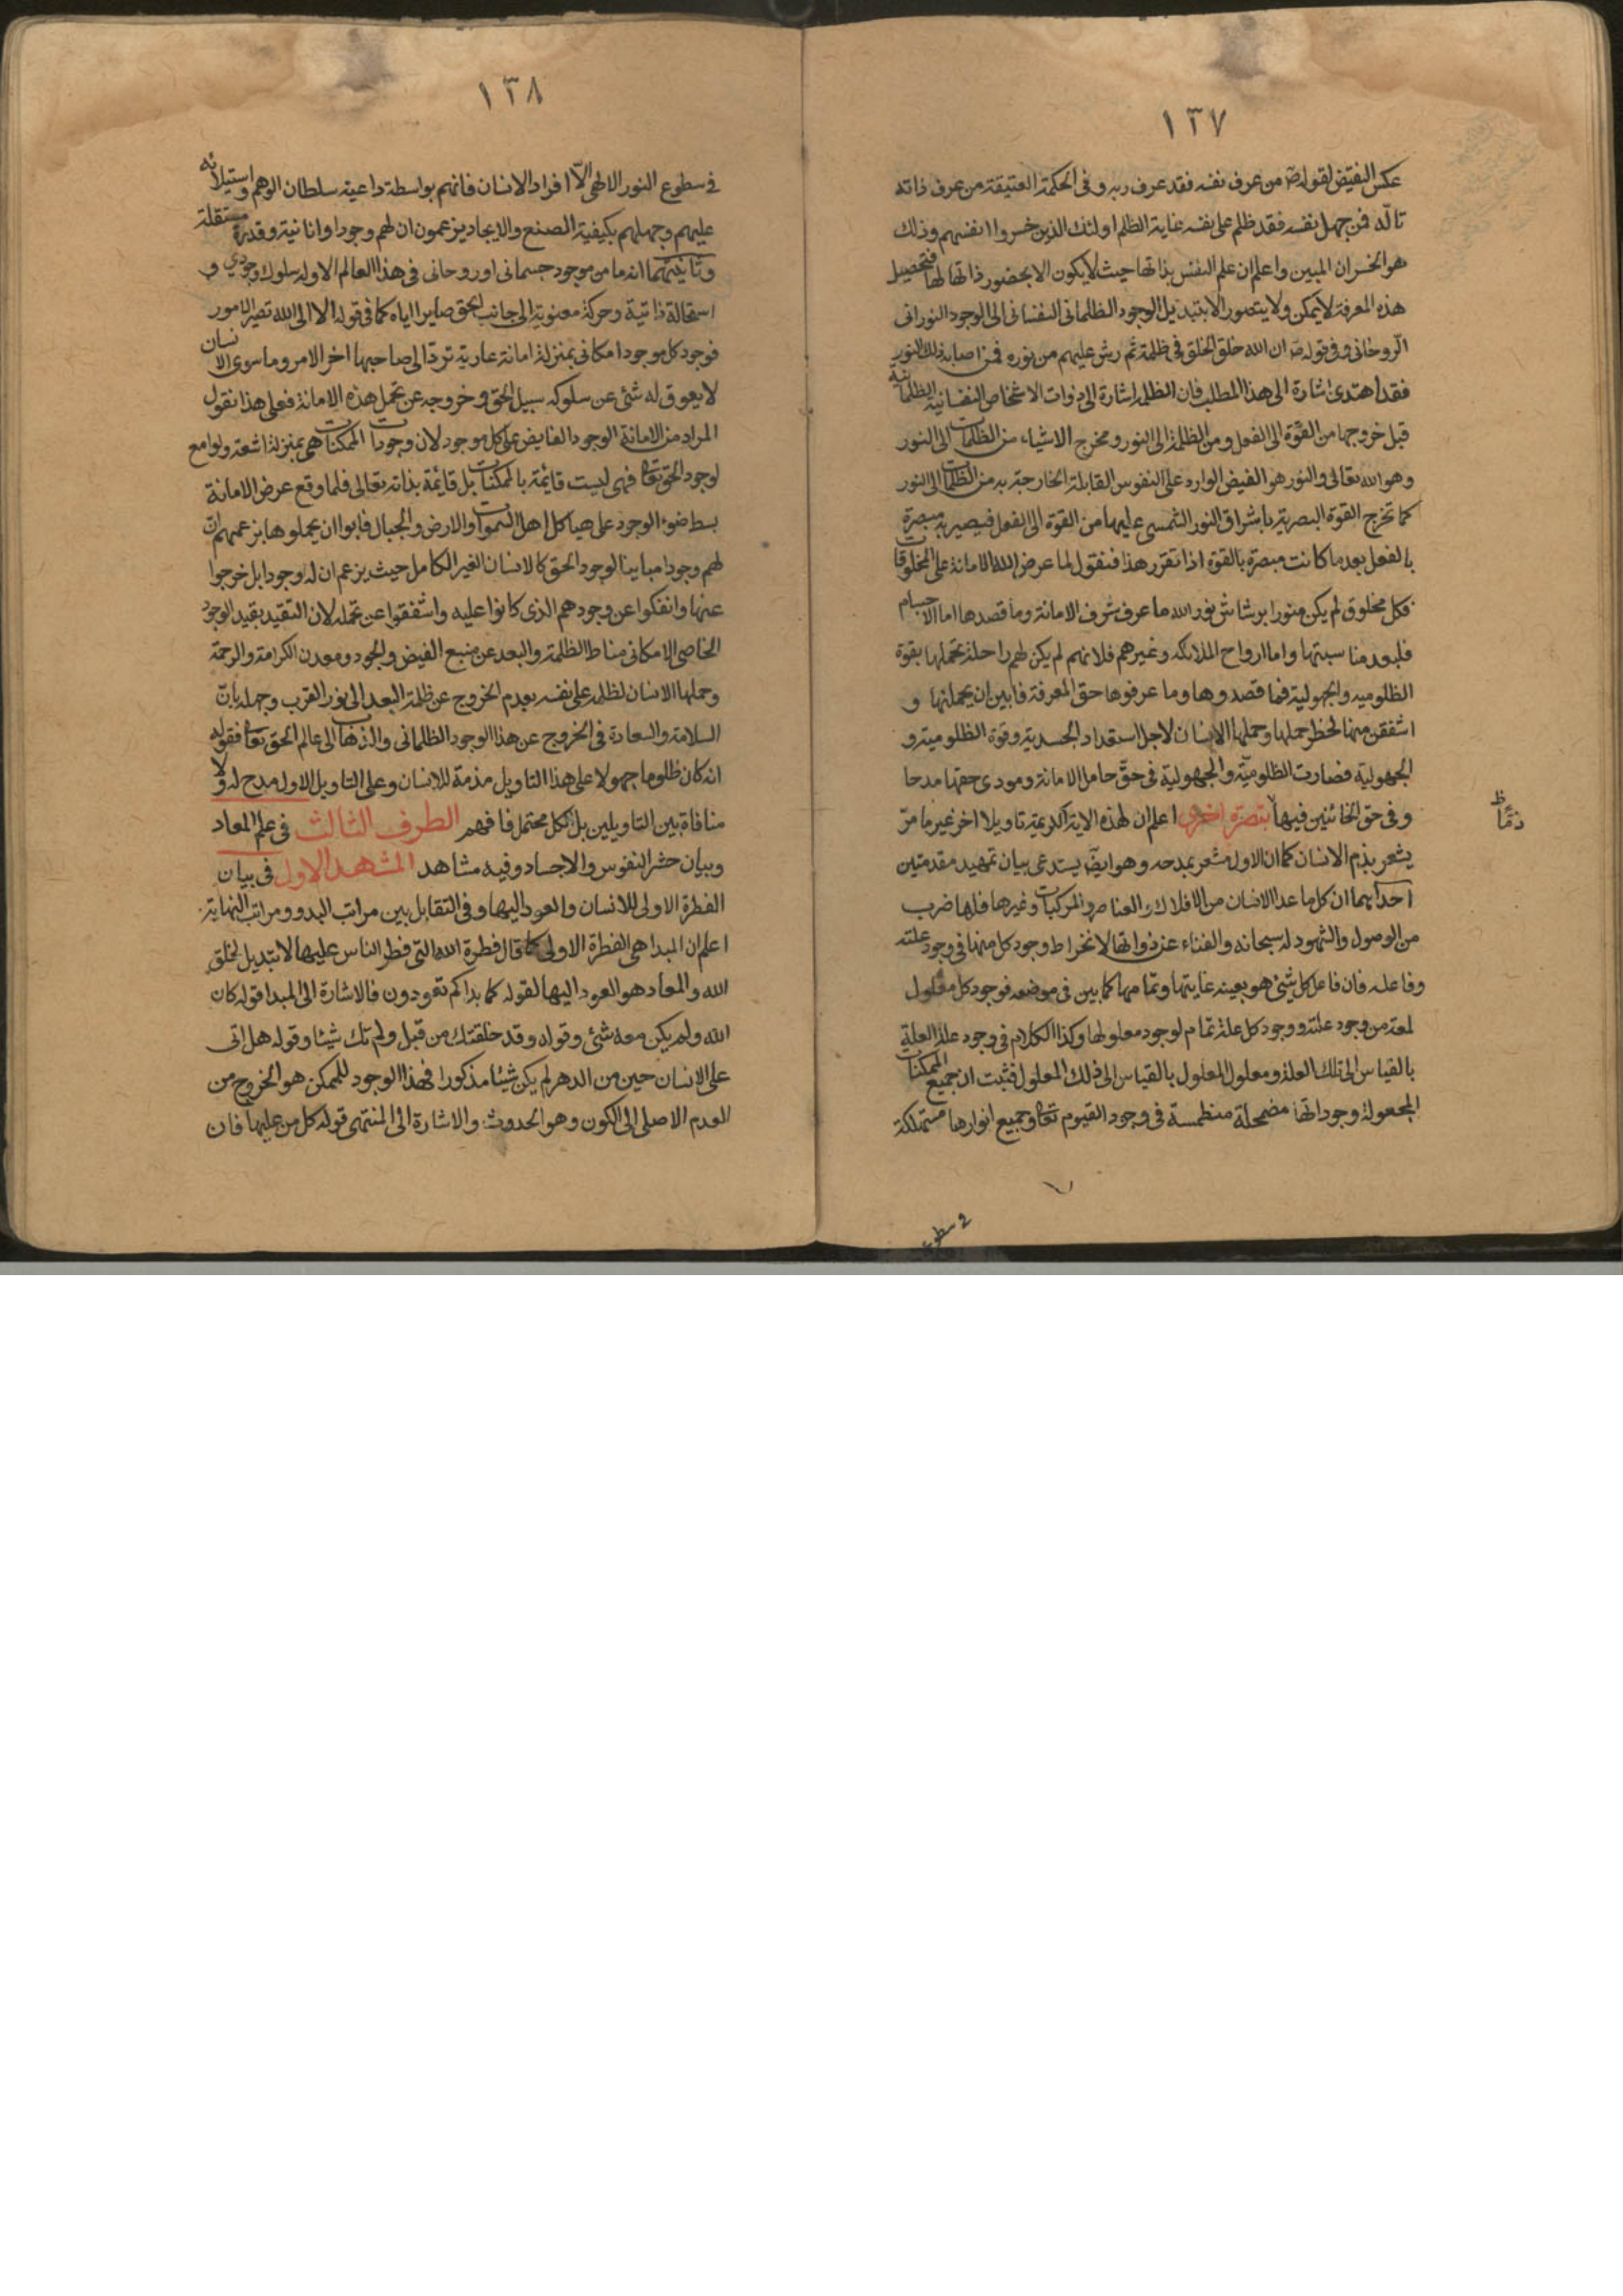 ١٣٧
عكس النقيض لقوله ص من عرف نفسه فقد عرف ربه وفى الحكمة العتيقة من عرف ذاته
تاله فمن جهل نفسه فقد ظلم على نفسه غاية الظلم اولئك الذين خسروا انفسهم وذلك
هو الخسران المبين واعلم ان علم النفس بذاتها حيث لا يكون الا بحضور ذاتها لها فتحصيل
هذه المعرفة لا يمكن ولا يتصور الا بتبديل الوجود الظلمانى النفسانى الى الوجود النورانى
الروحانى وفى قوله ص ان الله خلق الخلق فى ظلمة ثم رش عليهم من نوره فمن اصابه ذلك النور
فقد اهتدى اشارة الى هذا المطلب فان الظلمة اشارة الى ذوات الاشخاص النفسانية الظلمانية
قبل خروجها من القوة الى الفعل ومن الظلمة الى النور ومخرج الاشياء من الظلمات الى النور
وهو الله تعالى والنور هو الفيض الوارد على النفوس القابلة الخارجة به من الظلمات الى النور
كما تخرج القوة البصرية باشراق النور الشمسى عليها من القوة الى الفعل فيصير به مبصرة
بالفعل بعد ما كانت مبصرة بالقوة اذا تقرر هذا فنقول لما عرض الله الامانة على المخلوقات
فكل مخلوق لم يكن منورا برشاش نور الله ما عرف شرف الامانة وما قصدها اما الاجسام
فلبعد مناسبتها واما ارواح الملائكه وغيرهم فلانهم لم يكن لهم راحلة تحملها بقوة
الظلوميه والجهولية فما قصدوها وما عرفوها حق المعرفة فابين ان يحملنها و
اشفقن منها لخطر حملها وحملها الانسان لاجل استعداد الجسدية وقوة الظلومية و
الجهولية فصارت الظلومية والجهولية فى حق حامل الامانة ومودى حقها مدحا
وفى حق الخائنين فيها تبصرة اخرى اعلم ان لهذه الاية الكريمة تاويلا اخر غير ما مر
ذمًّا ظ
يشعر بذم الانسان كما ان الاول مشعر بمدحه وهو ايض يستدعى بيان تمهيد مقدمتين
احدايهما ان كل ما عدا الانسان من الافلاك والعناصر والمركبات وغيرها فلها ضرب
من الوصول والشهود له سبحانه والفناء عن ذواتها لانخراط وجود كل منها فى وجود علته
وفاعله فان فاعل كل شئ هو بعينه غايتها وتمامها كما بين فى موضعه فوجود كل معلول
لمعة من وجود علته ووجود كل علة تمام لوجود معلولها وكذا الكلام فى وجود علة العلة
بالقياس الى تلك العلة ومعلول المعلول بالقياس الى ذلك المعلول فثبت ان جميع الممكنات
المجعولة وجوداتها مضمحلة منطمسة فى وجود القيوم تعا وجميع انوارها مستهلكة
فى سطوع
١٣٨
فى سطوع النور الالهى الا افراد الانسان فانهم بواسطة داعية سلطان الوهم واستيلائه
عليهم وجهلهم بكيفية الصنع والايجاد يزعمون ان لهم وجودا وانانية وقدرة مستقلة
وثانيتهما انه ما من موجود جسمانى او روحانى فى هذا العالم الا وله سلوك وجودي و
استحالة ذاتية وحركة معنوية الى جانب الحق صايرا اياه كما فى قوله الا الى الله تصير الامور
فوجود كل موجود امكانى بمنزلة امانة عارية ترد الى صاحبها اخر الامر وما سوى الانسان
لا يعوق له شئ عن سلوكه سبيل الحق وخروجه عن تحمل هذه الامانة فعلى هذا نقول
المراد من الامانة الوجود الفايض على كل موجود لان وجودات الممكنات هى بمنزلة اشعة ولوامع
لوجود الحق تعا فهى ليست قايمة بالممكنات بل قايمة بذاته تعالى فلما وقع عرض الامانة
بسط ضوء الوجود على هياكل اهل السموات والارض والجبال فابوا ان يحملوها بزعمهم ان
لهم وجودا مباينا لوجود الحق كالانسان الغير الكامل حيث يزعم ان له وجودا بل خرجوا
عنها وانفكوا عن وجودهم الذى كانوا عليه واشفقوا عن تحمله لان التقيد بقيد الوجود
الخاصى الامكانى مناط الظلمة والبعد عن منبع الفيض والجود ومعدن الكرامة والرحمة
وحملها الانسان لظلمه على نفسه بعدم الخروج عن ظلمة البعد الى نور القرب وجهله بان
السلامة والسعادة فى الخروج عن هذا الوجود الظلمانى والذهاب الى عالم الحق تعا فقوله
انه كان ظلوما جهولا على هذا التاويل مذمة للانسان وعلى التاويل الاول مدح له ولا
منافاة بين التاويلين بل الكل محتمل فافهم الطرف الثالث فى علم المعاد
وبيان حشر النفوس والاجساد وفيه مشاهد المشهد الاول فى بيان
الفطرة الاولى للانسان والعود اليها وفى التقابل بين مراتب البدو ومراتب النهاية
اعلم ان المبدا هى الفطرة الاولى كما قال فطرة الله التى فطر الناس عليها لا تبديل لخلق
الله والمعاد هو العود اليها لقوله كما بداكم تعودون فالاشارة الى المبدا قوله كان
الله ولم يكن معه شئ وقوله وقد خلقتك من قبل ولم تك شيئا وقوله هل اتى
على الانسان حين من الدهر لم يكن شيئا مذكورا فهذا الوجود للممكن هو الخروج من
العدم الاصلى الى الكون وهو الحدوث والاشارة الى المنتهى قوله كل من عليها فان